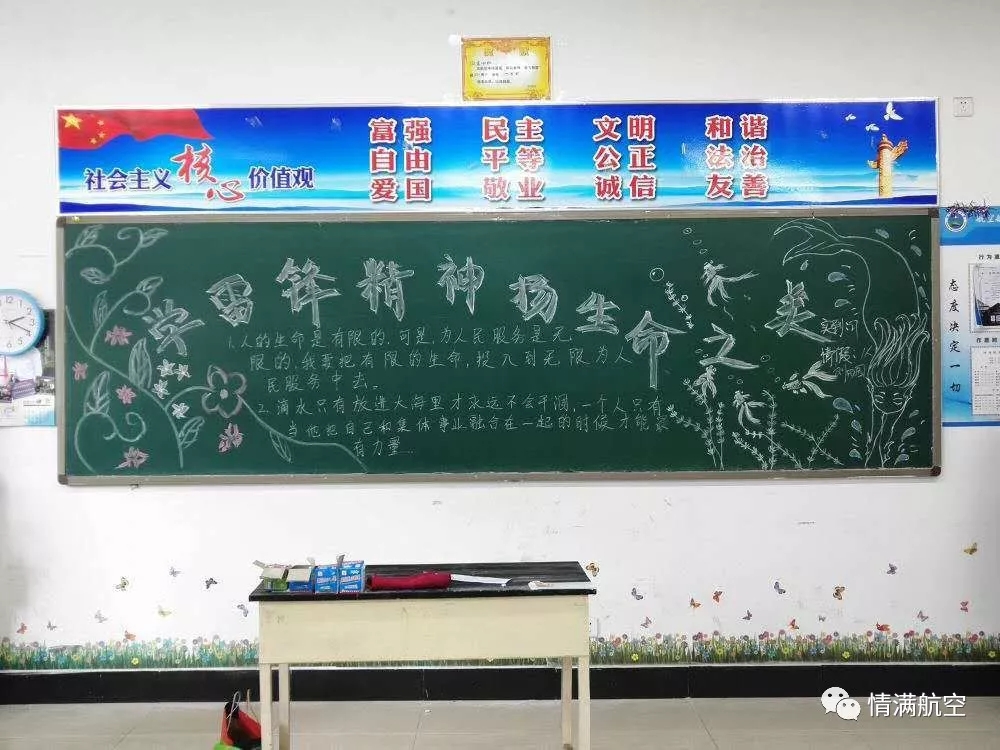 富强 民主 文明 和谐
社会主义核心价值观 自由 平等 公正 法治
爱国 敬业 诚信 友善
学雷锋精神扬生命之美
1.人的生命是有限的,可是,为人民服务是无
限的,我要把有限的生命,投入到无限为人
民服务中去。
2.滴水只有放进大海里才永远不会干涸,一个人只有
当他把自己和集体事业融合在一起的时候才能最
有力量...
态度决定一切
情满航空